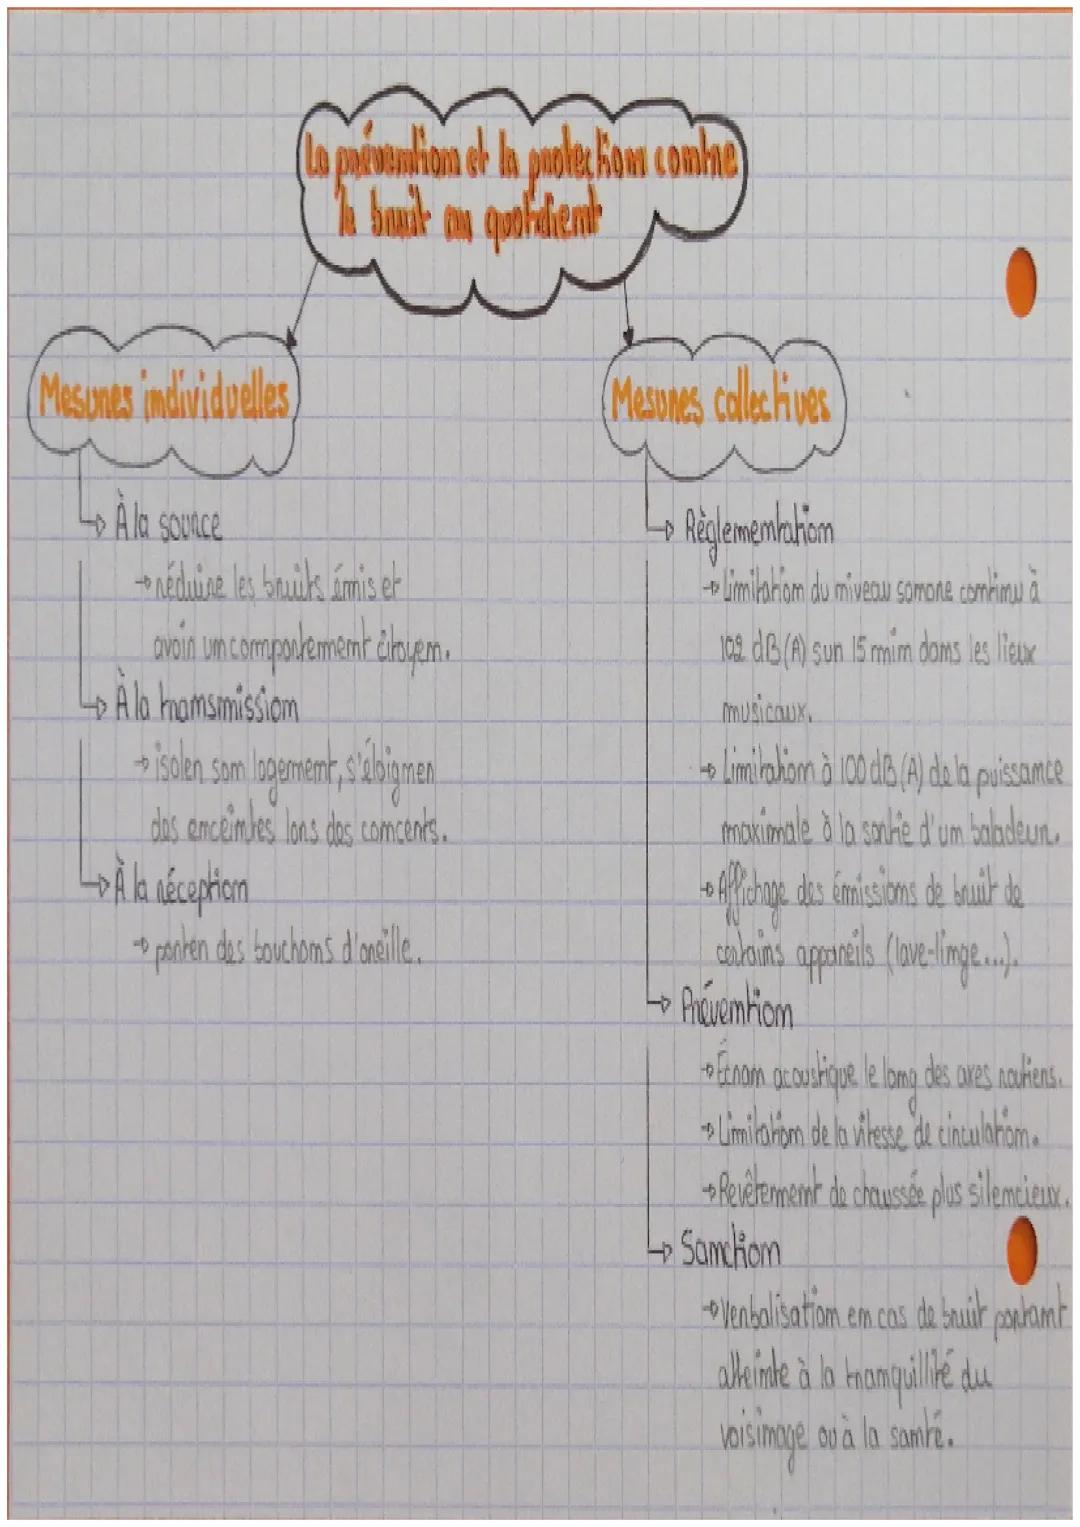 La prévention et la protection contre
le bruit au quotidient
Mesures individuelles
À la source
→ réduire les bruits émis et
avoir un comportement citoyen.
À la transmission
→ isoler son logement, s'éloigner
des enceintes lors des concerts.
À la réception
→ porter des bouchons d'oreille.
Mesures collectives
Règlementation
→ Limitation du niveau sonore continu à
102 dB(A) sur 15 min dans les lieux
musicaux.
→ Limitation à 100 dB(A) de la puissance
maximale à la sortie d'un baladeur.
→ Affichage des émissions de bruit de
certains appareils (lave-linge...).
Prévention
→ Écran acoustique le long des axes routiers.
→ Limitation de la vitesse de circulation.
→ Revêtement de chaussée plus silencieux.
Sanction
→ Verbalisation en cas de bruit portant
atteinte à la tranquillité du
voisinage ou à la santé.